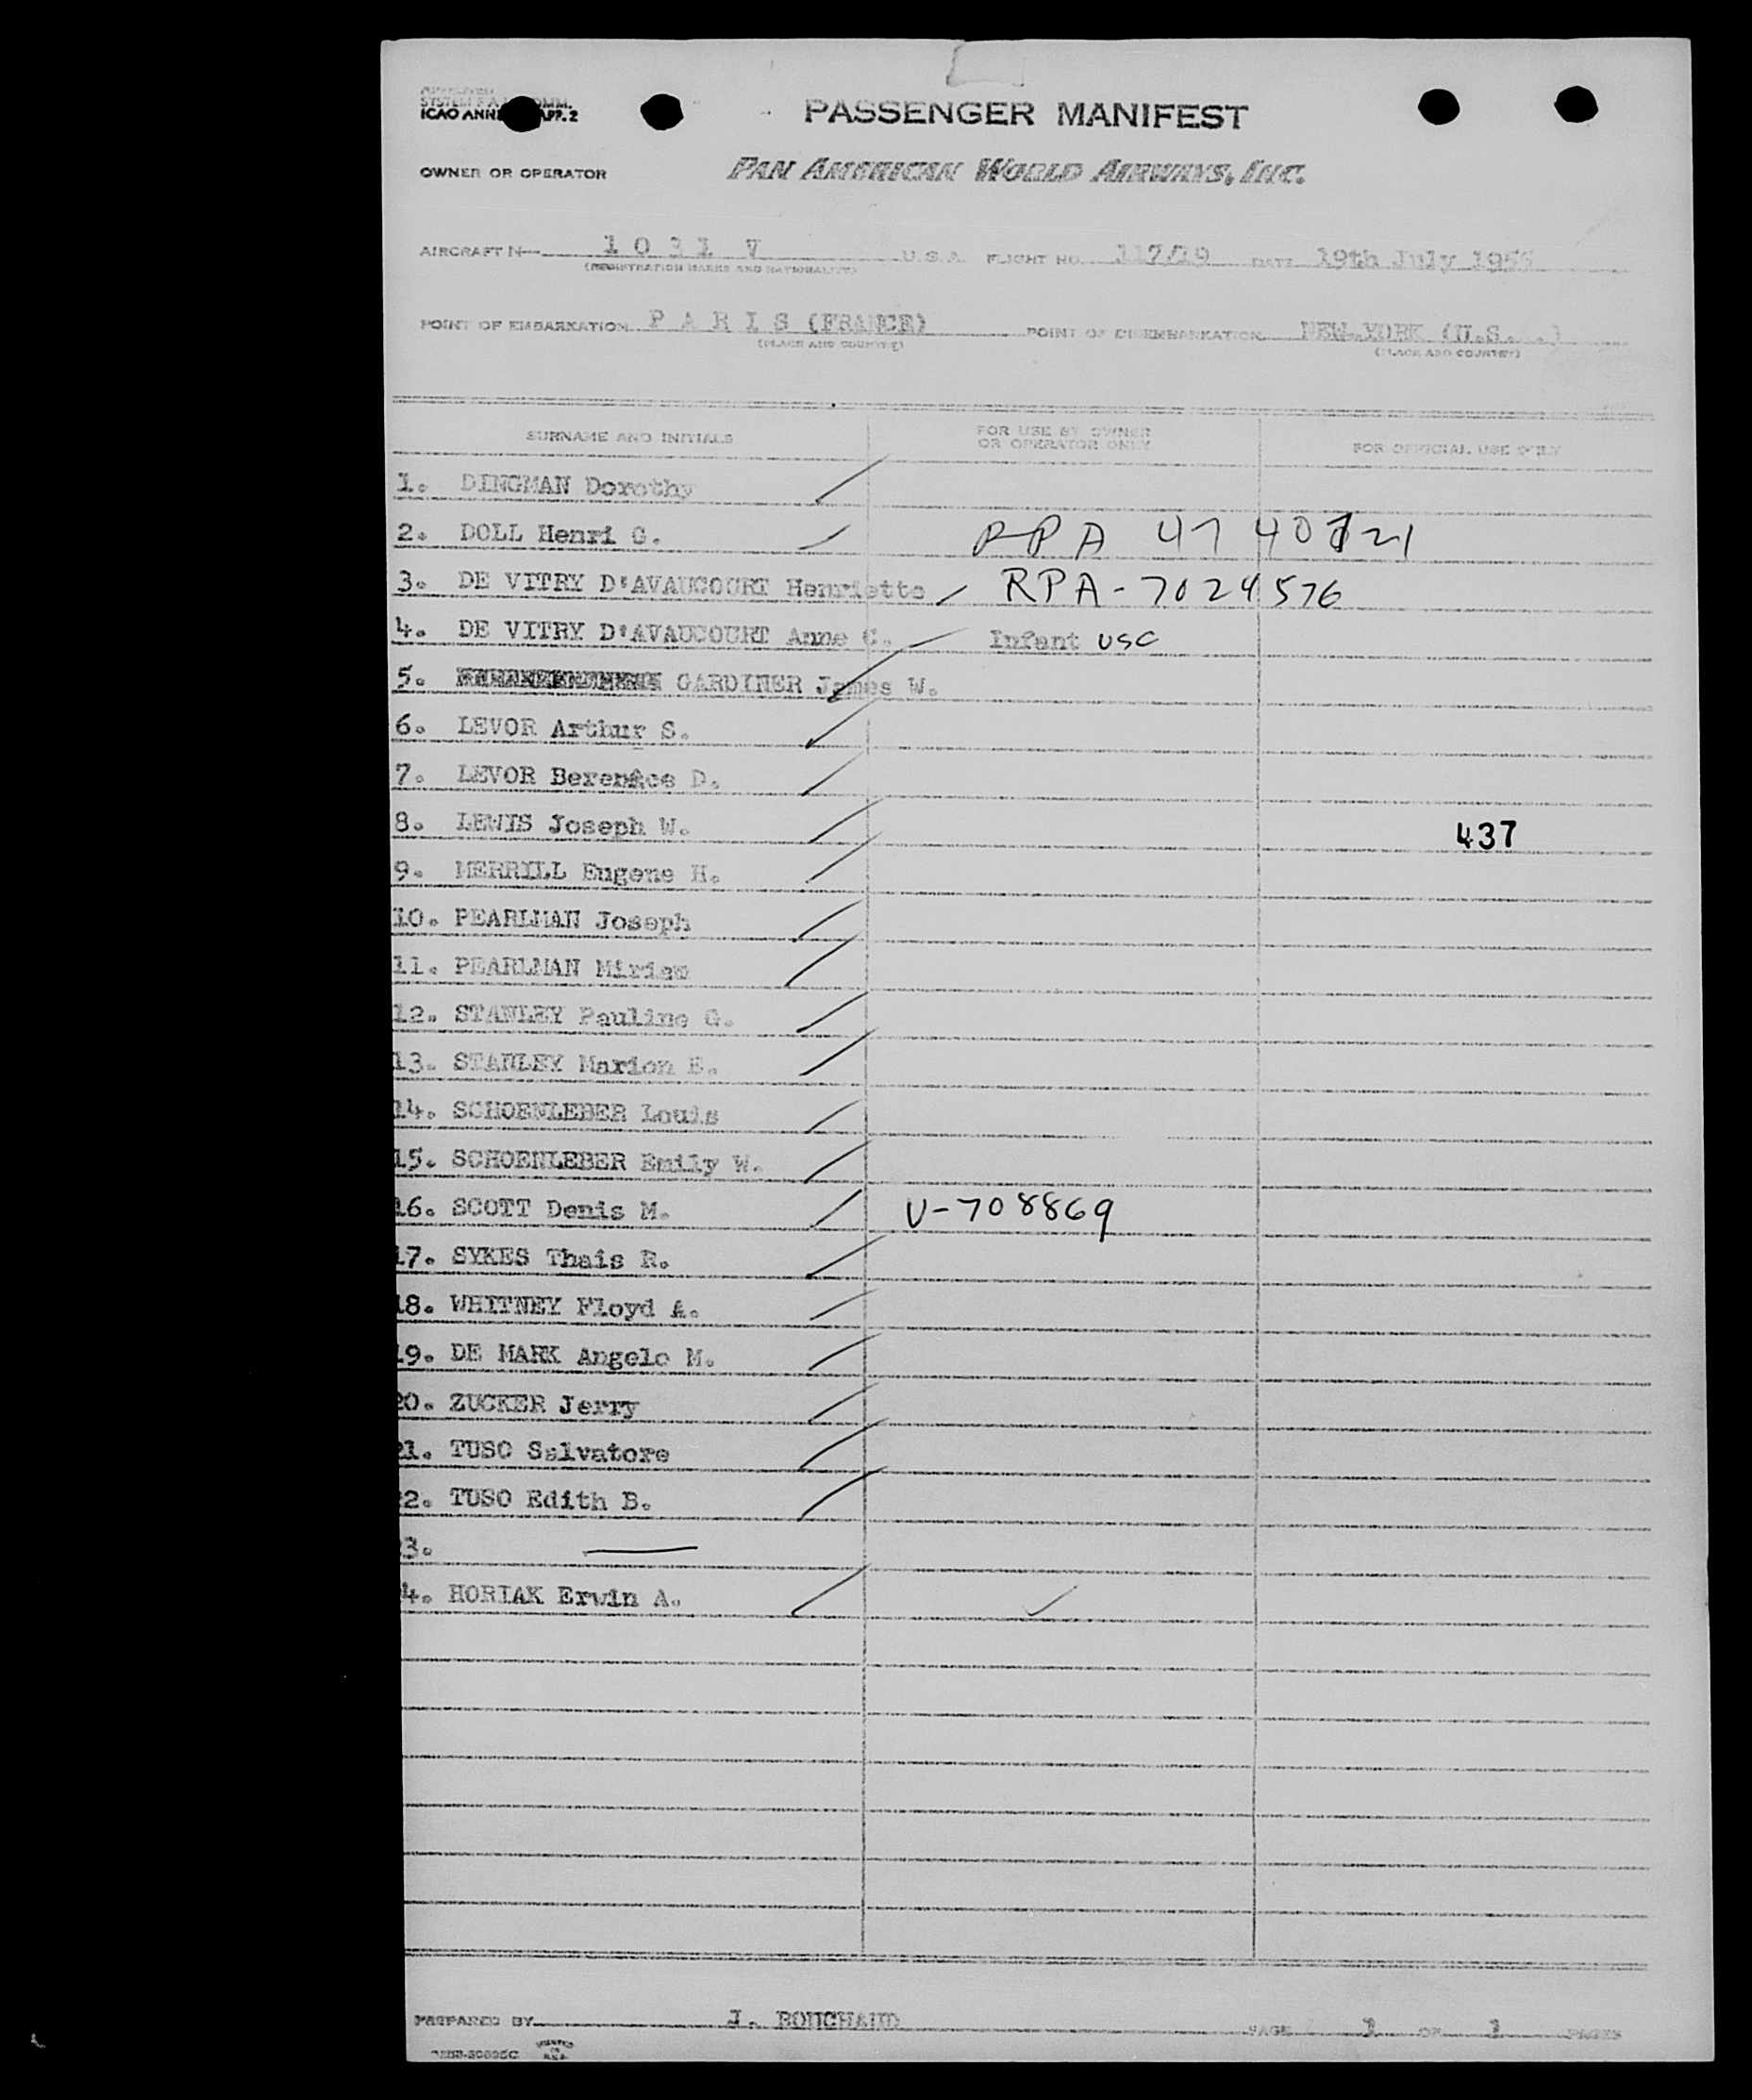 SYSTEM
ICAO ANNE APP. 2
PASSENGER MANIFEST
OWNER OR OPERATOR PAN AMERICAN WORLD AIRWAYS, INC.
AIRCRAFT N— 1 0 3 1 V U.S.A. FLIGHT NO. 117/19 DATE 19th July
(REGISTRATION MARKS AND NATIONALITY)
POINT OF EMBARKATION P A R I S (FRANCE) POINT OF DISEMBARKATION NEW YORK (U.S. .)
(PLACE AND COUNTRY) (PLACE AND COUNTRY)
SURNAME AND INITIALS FOR USE BY OWNER OR OPERATOR ONLY FOR OFFICIAL USE ONLY
1. DINGMAN Dorothy
2. DOLL Henri G. RPA 47 40721
3. DE VITRY D'AVAUCOURT Henriette RPA-7024576
4. DE VITRY D'AVAUCOURT Anne C. Infant USC
5. GARDINER James W.
6. LEVOR Arthur S.
7. LEVOR Berenice D.
8. LEWIS Joseph W. 437
9. MERRILL Eugene H.
10. PEARLMAN Joseph
11. PEARLMAN Miriam
12. STANLEY Pauline G.
13. STANLEY Marion E.
14. SCHOENLEBER Louis
15. SCHOENLEBER Emily W.
16. SCOTT Denis M. V-708869
17. SYKES Thais R.
18. WHITNEY Floyd A.
19. DE MARK Angelo M.
20. ZUCKER Jerry
21. TUSO Salvatore
2. TUSO Edith B.
3. —
4. HORIAK Erwin A.
PREPARED BY J. BOUCHAUD PAGE 1 OF 1 PAGES
PRINTED IN U.S.A.